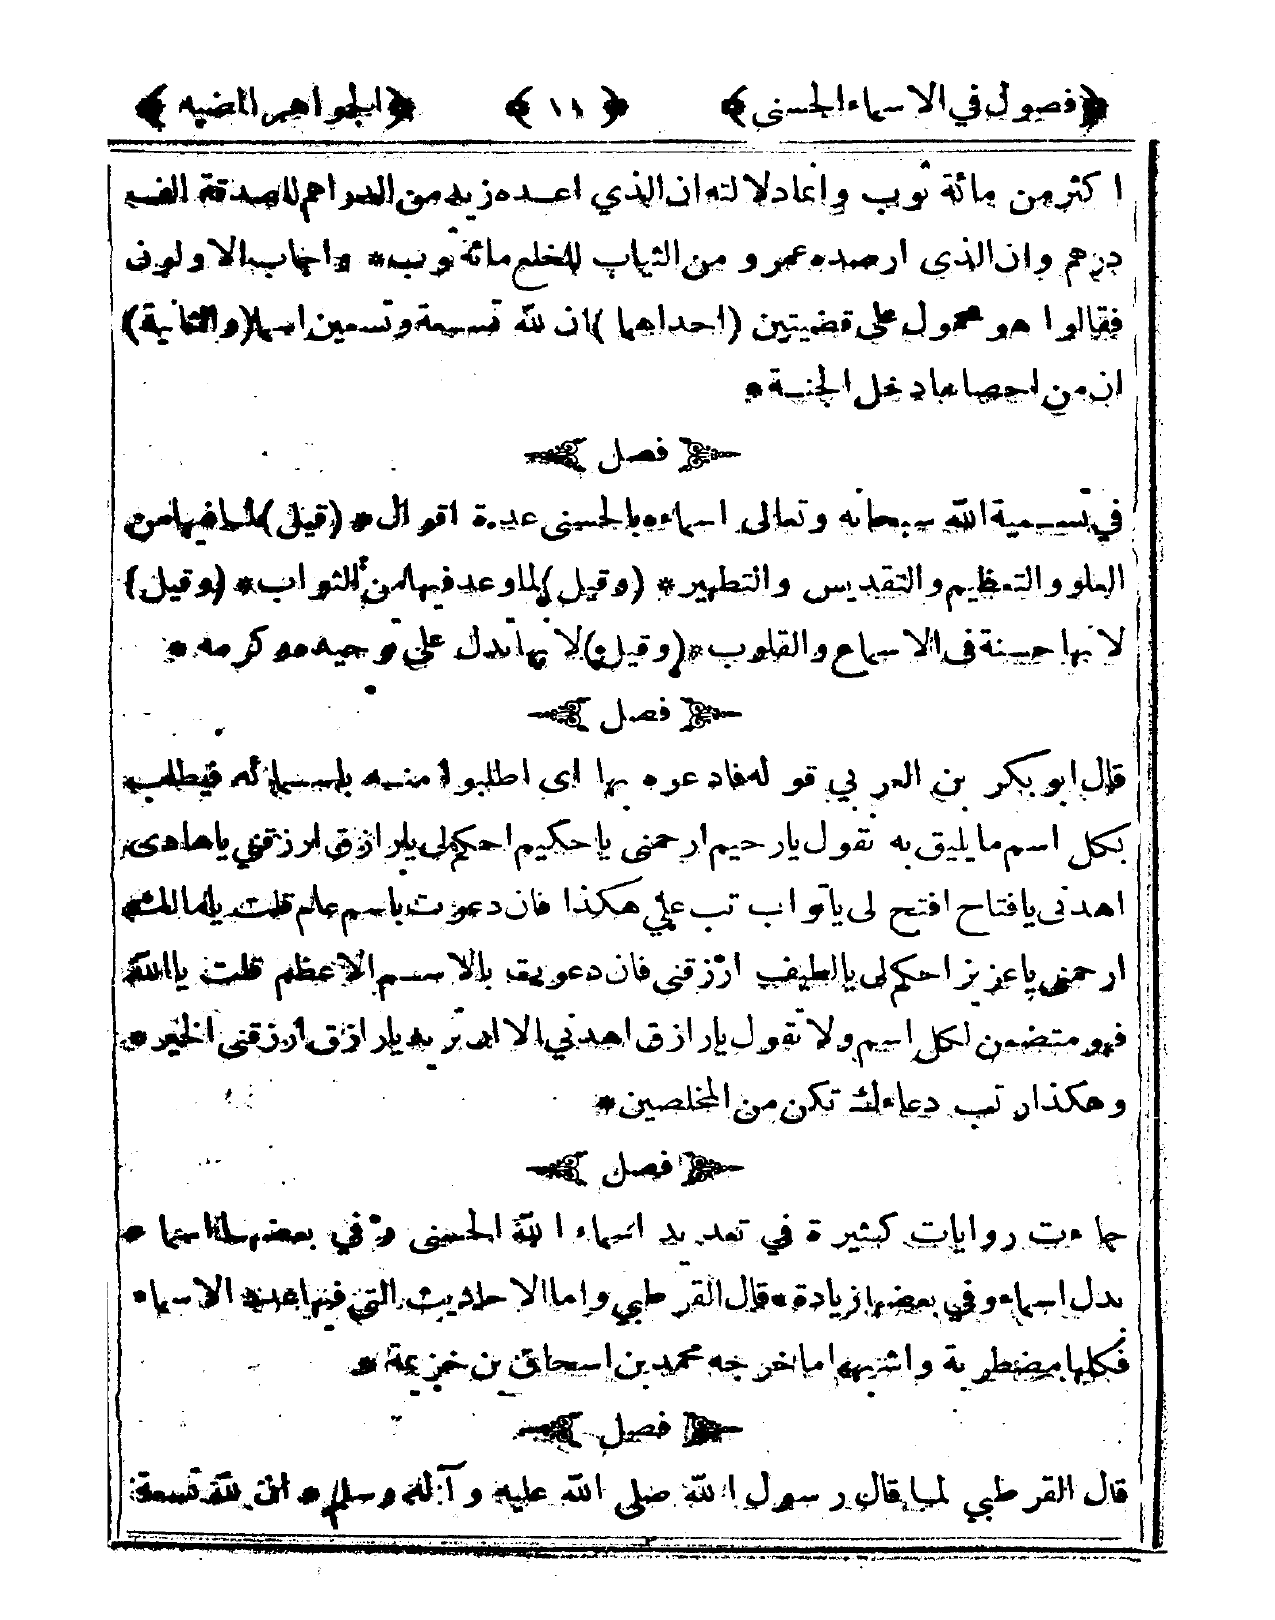 ﴿فصول في الاسماء الحسنى﴾ ﴿١١﴾ ﴿الجواهر المضيه﴾
اكثر من مائة ثوب وانما دلالته ان الذي اعده زيد من الدراهم للصدقة الف
درهم وان الذى ارصده عمرو من الثياب للخلع مائة ثوب * واجاب الاولون
فقالوا هو محمول على قضيتين (احداهما) ان لله تسعة وتسعين اسما (والثانية)
ان من احصاها دخل الجنة *
﴿فصل﴾
في تسمية الله سبحانه وتعالى اسماءه بالحسنى عدة اقوال * (قيل) لما فيها من
العلو والتعظيم والتقديس والتطهير * (وقيل) لما وعد فيها من الثواب * (وقيل)
لانها حسنة فى الاسماع والقلوب * (وقيل) لانها تدل على توحيده وكرمه *
﴿فصل﴾
قال ابو بكر بن العربي قوله فادعوه بها اى اطلبوا منه باسمائه فيطلب
بكل اسم ما يليق به تقول يارحيم ارحمنى ياحكيم احكم لى يارازق ارزقني ياهادى
اهدنى يافتاح افتح لى ياتواب تب علي هكذا فان دعوت باسم عام قلت يامالك
ارحمنى ياعزيز احكم لى يالطيف ارزقنى فان دعوت بالاسم الاعظم قلت ياالله
فهو متضمن لكل اسم ولا تقول يارازق اهدني الا ان تريد يارازق ارزقنى الخير *
وهكذا رتب دعاءك تكن من المخلصين *
﴿فصل﴾
جاءت روايات كثيرة في تعديد اسماء الله الحسنى وفي بعضها اسما *
بدل اسماء وفي بعضها زيادة * قال القرطبي واما الاحاديث التي فيها عدد الاسماء
فكلها مضطربة واشبهها ما خرجه محمد بن اسحاق بن خزيمة *
﴿فصل﴾
قال القرطبي لما قال رسول الله صلى الله عليه وآله وسلم * ان لله تسعة